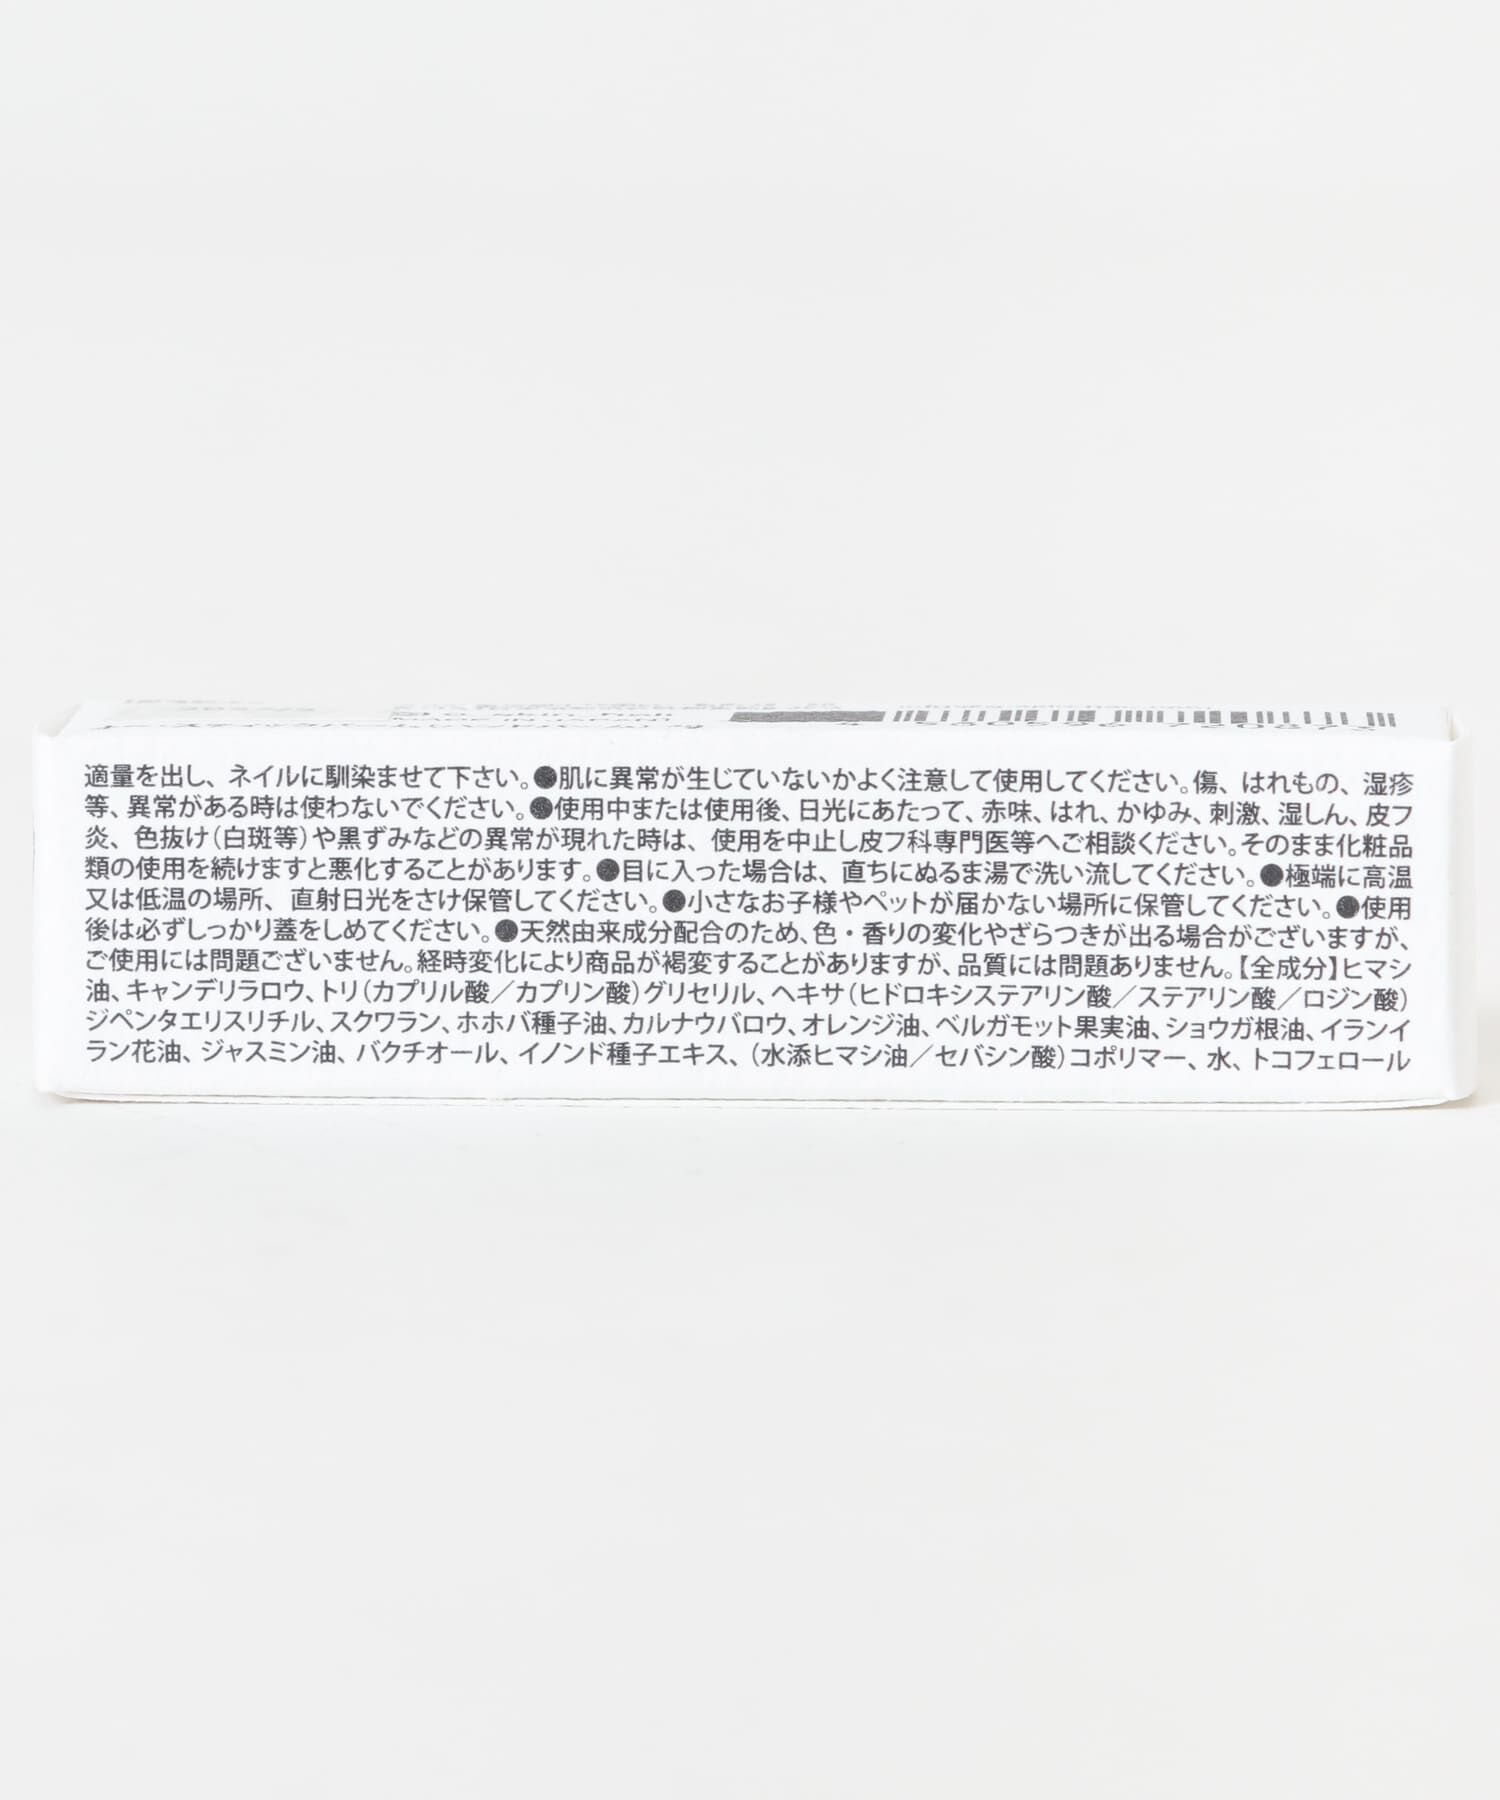 適量を出し、ネイルに馴染ませて下さい。●肌に異常が生じていないかよく注意して使用してください。傷、はれもの、湿疹
等、異常がある時は使わないでください。●使用中または使用後、日光にあたって、赤味、はれ、かゆみ、刺激、湿しん、皮フ
炎、色抜け（白斑等）や黒ずみなどの異常が現れた時は、使用を中止し皮フ科専門医等へご相談ください。そのまま化粧品
類の使用を続けますと悪化することがあります。●目に入った場合は、直ちにぬるま湯で洗い流してください。●極端に高温
又は低温の場所、直射日光をさけ保管してください。●小さなお子様やペットが届かない場所に保管してください。●使用
後は必ずしっかり蓋をしめてください。●天然由来成分配合のため、色・香りの変化やざらつきが出る場合がございますが、
ご使用には問題ございません。経時変化により商品が褐変することがありますが、品質には問題ありません。【全成分】ヒマシ
油、キャンデリラロウ、トリ（カプリル酸／カプリン酸）グリセリル、ヘキサ（ヒドロキシステアリン酸／ステアリン酸／ロジン酸）
ジペンタエリスリチル、スクワラン、ホホバ種子油、カルナウバロウ、オレンジ油、ベルガモット果実油、ショウガ根油、イランイ
ラン花油、ジャスミン油、バクチオール、イノンド種子エキス、（水添ヒマシ油／セバシン酸）コポリマー、水、トコフェロール